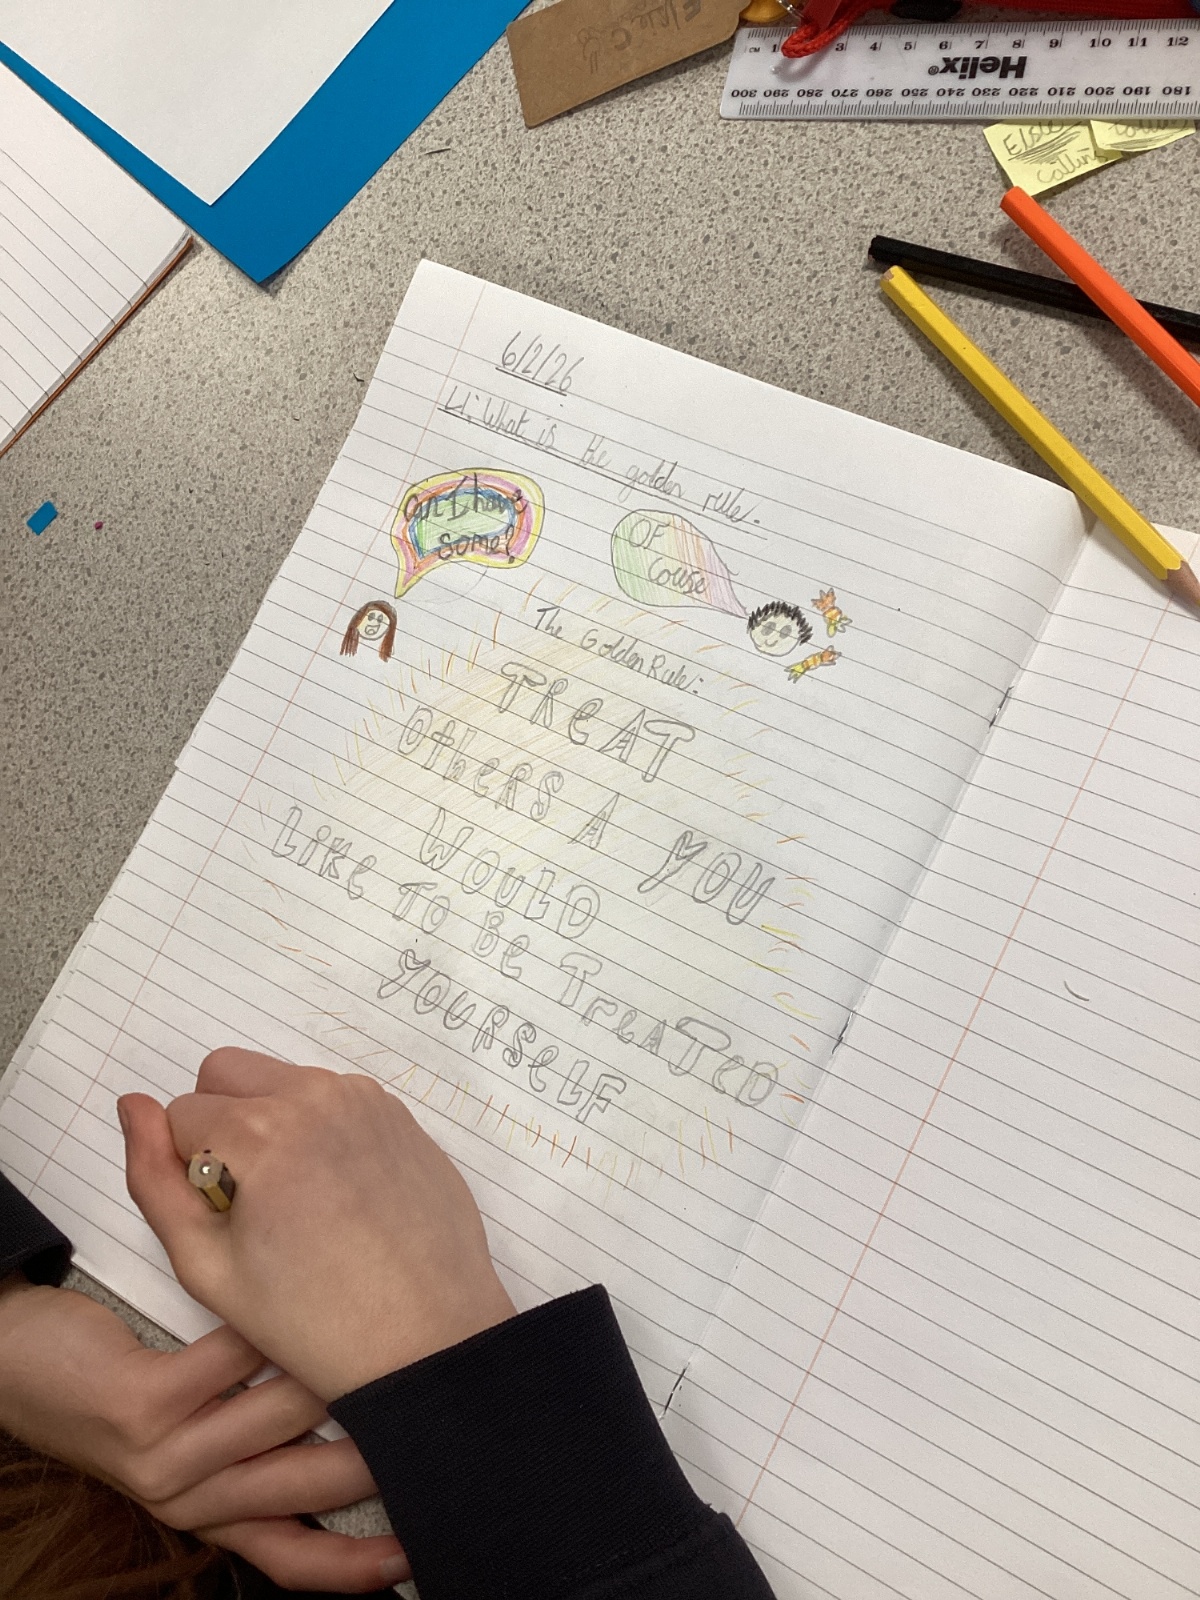 6/2/26
LI: What is the golden rule.
Can I have
some?
OF
Couse
The Golden Rule:
TReAT
OtheRS A YOU
WOULD
LiKe TO Be TreATeD
YOURSeLF
CM 1 3 4 5 6 7 8 9 10 11 12
Helix®
300 290 280 270 260 250 240 230 220 210 200 190 180
Elsie C
Elsie
Collins